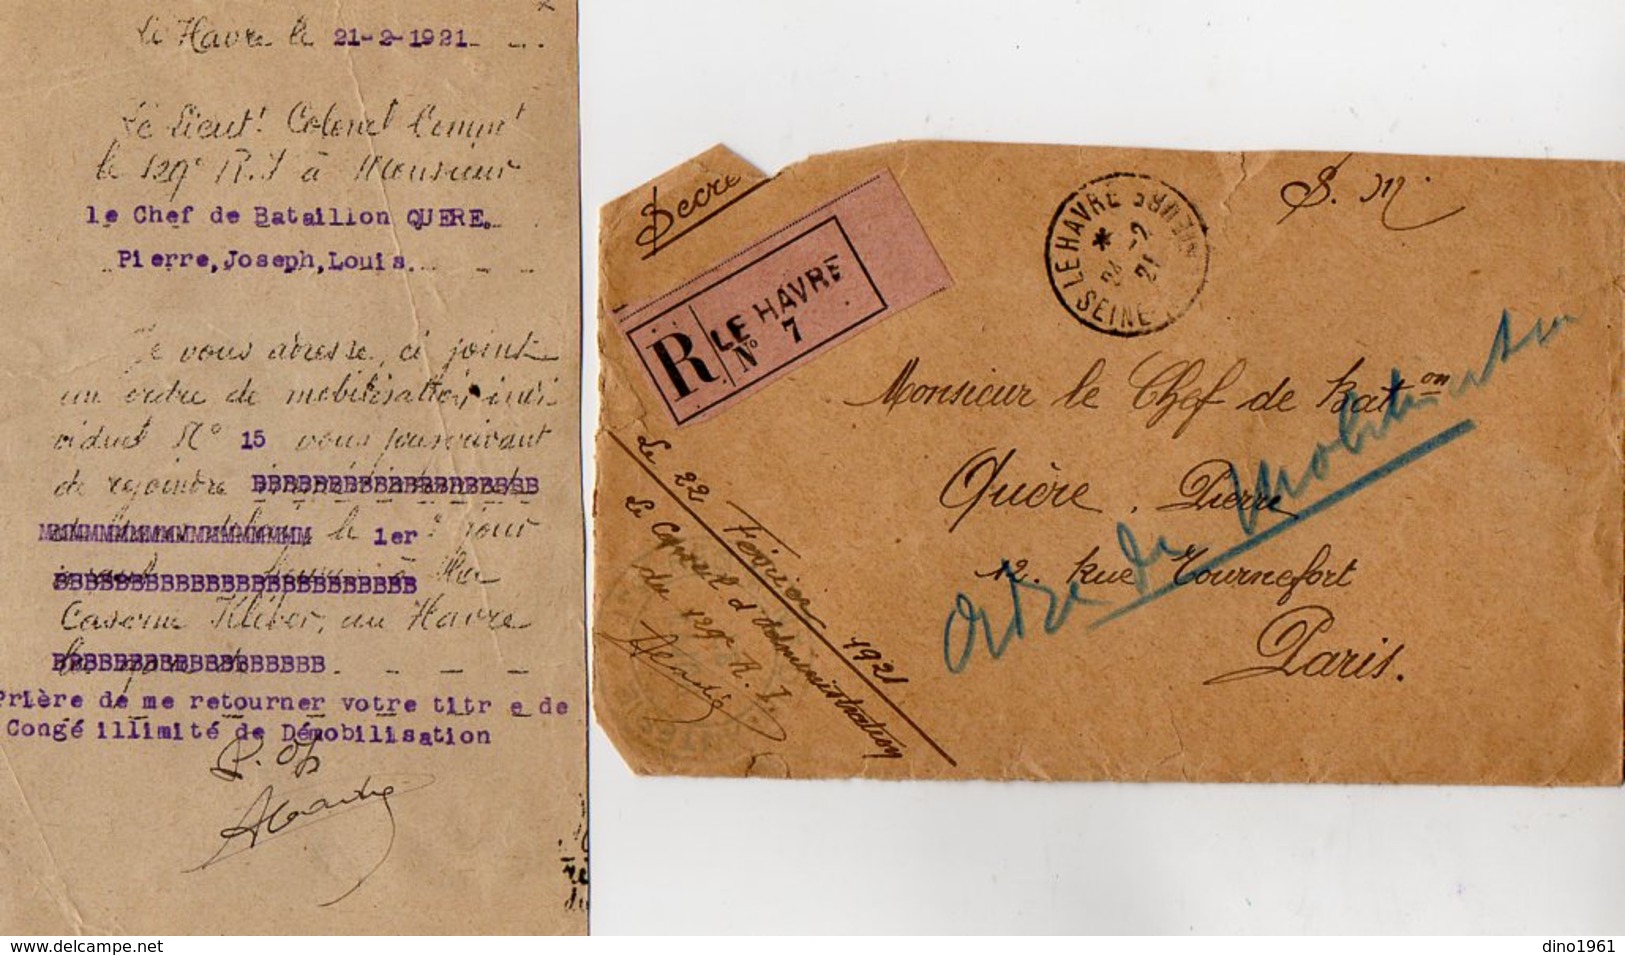 Le Havre le 21-2-1921
Le Lieut! Colonel Comm't
le 129e R.I à Monsieur
le Chef de Bataillon QUERE.
Pierre,Joseph,Louis.
Je vous adresse, ci joint
un ordre de mobilisation indi
viduel N° 15 vous prescrivant
de rejoindre BBBBBBBBBBBBBBBBBBB
MMMMMMMMMMMMMMMMMM le 1er jour
BBBBBBBBBBBBBBBBBBBBBBBB à la
Caserne Kléber, au Havre
BBBBBBBBBBBBBBBBBB
Prière de me retourner votre titr e de
Congé illimité de Démobilisation
P. O/
Secre
R
LE HAVRE
N° 7
LE HAVRE
* 24 -2
21
SEINE
S. M
Monsieur le Chef de Bat on
Quère, Pierre
12. Rue Tournefort
Paris.
Ordre de Mobilisation
Le 22 Février 1921
Le Conseil d'Administration
du 129e R. I.
www.delcampe.net
dino1961